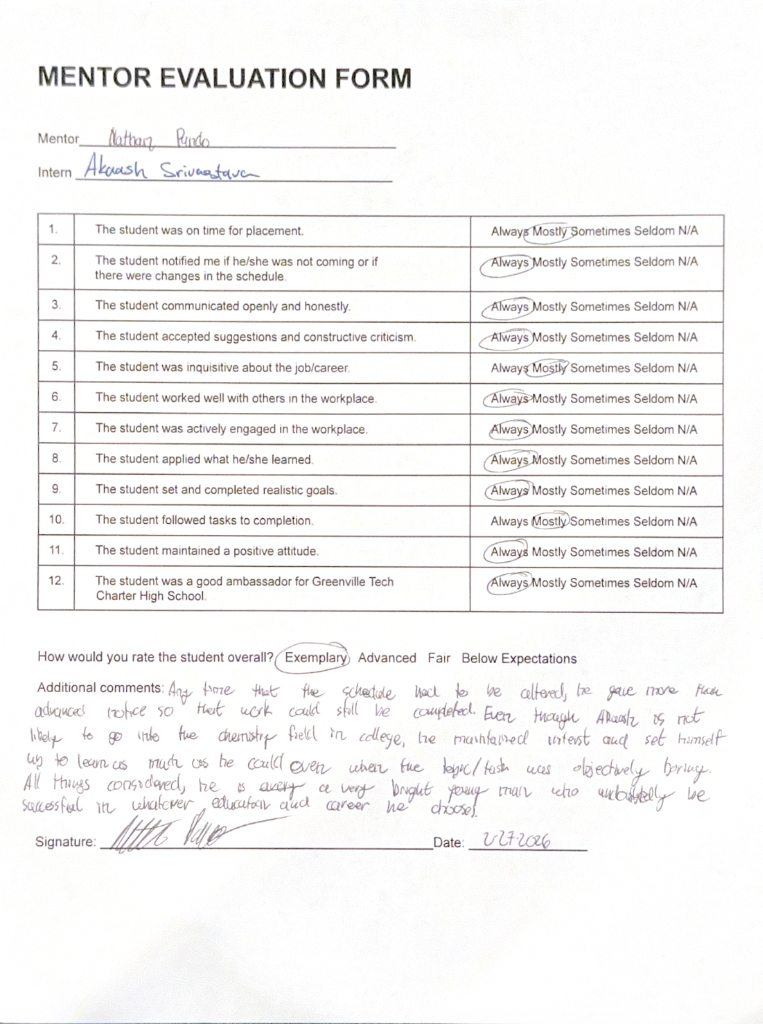 MENTOR EVALUATION FORM
Mentor Nathan
Intern Akaash Srivastava
1. The student was on time for placement. Always Mostly Sometimes Seldom N/A
2. The student notified me if he/she was not coming or if Always Mostly Sometimes Seldom N/A
there were changes in the schedule.
3. The student communicated openly and honestly. Always Mostly Sometimes Seldom N/A
4. The student accepted suggestions and constructive criticism. Always Mostly Sometimes Seldom N/A
5. The student was inquisitive about the job/career. Always Mostly Sometimes Seldom N/A
6. The student worked well with others in the workplace. Always Mostly Sometimes Seldom N/A
7. The student was actively engaged in the workplace. Always Mostly Sometimes Seldom N/A
8. The student applied what he/she learned. Always Mostly Sometimes Seldom N/A
9. The student set and completed realistic goals. Always Mostly Sometimes Seldom N/A
10. The student followed tasks to completion. Always Mostly Sometimes Seldom N/A
11. The student maintained a positive attitude. Always Mostly Sometimes Seldom N/A
12. The student was a good ambassador for Greenville Tech Always Mostly Sometimes Seldom N/A
Charter High School.
How would you rate the student overall? Exemplary Advanced Fair Below Expectations
Additional comments: Any time that the schedule had to be altered, he gave more than
advanced notice so that work could still be completed. Even though Akaash is not
likely to go into the chemistry field in college, he maintained interest and set himself
up to learn as much as he could even when the topic/task was objectively boring.
All things considered, he is a very bright young man who undoubtedly be
successful in whatever education and career he chooses.
Signature: Date: 2-27-2026